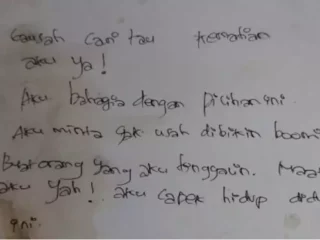 Gausah cari tau kematian
aku ya!
Aku bahagia dengan pilihan ini.
Aku minta gak usah dibikin
orang yang aku tinggalin. Maa
aku yah!. aku capek hidup
ini.